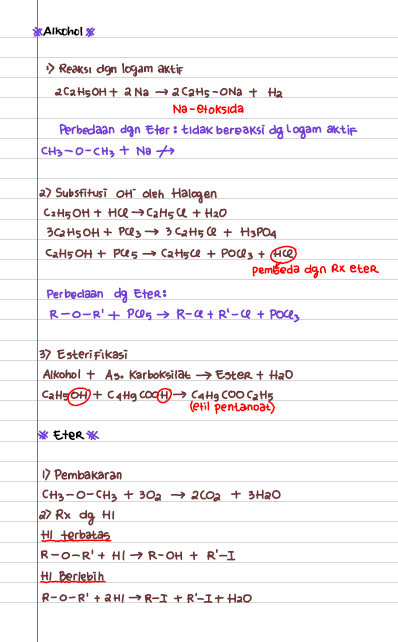 *Alkohol*
1) Reaksi dgn logam aktif
2C₂H₅OH + 2Na → 2C₂H₅-ONa + H₂
Na-etoksida
Perbedaan dgn Eter: tidak bereaksi dg logam aktif
CH₃-O-CH₃ + Na ↛
2) Substitusi OH⁻ oleh Halogen
C₂H₅OH + HCl → C₂H₅Cl + H₂O
3C₂H₅OH + PCl₃ → 3C₂H₅Cl + H₃PO₄
C₂H₅OH + PCl₅ → C₂H₅Cl + POCl₃ + HCl
pembeda dgn Rx eter
Perbedaan dg Eter:
R-O-R' + PCl₅ → R-Cl + R'-Cl + POCl₃
3) Esterifikasi
Alkohol + As. Karboksilat → Ester + H₂O
C₂H₅OH + C₄H₉COOH → C₄H₉COOC₂H₅
(etil pentanoat)
*Eter*
1) Pembakaran
CH₃-O-CH₃ + 3O₂ → 2CO₂ + 3H₂O
2) Rx dg HI
HI terbatas
R-O-R' + HI → R-OH + R'-I
HI Berlebih
R-O-R' + 2HI → R-I + R'-I + H₂O